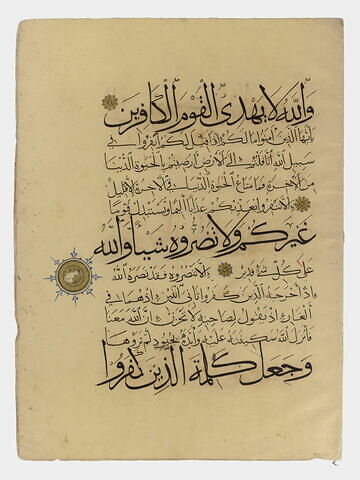 والله لا يهدى القوم الكافرين
يايها الذين امنوا ما لكم اذا قيل لكم انفروا في
سبيل الله اثاقلتم الى الارض ارضيتم بالحيوة الدنيا
من الاخرة فما متاع الحيوة الدنيا في الاخرة الا قليل
الا تنفروا يعذبكم عذابا اليما ويستبدل قوما
غيركم ولا تضروه شيئا والله
على كل شئ قدير الا تنصروه فقد نصره الله
اذ اخرجه الذين كفروا ثاني اثنين اذ هما في
الغار اذ يقول لصاحبه لا تحزن ان الله معنا
فانزل الله سكينته عليه وايده بجنود لم تروها
وجعل كلمة الذين كفروا